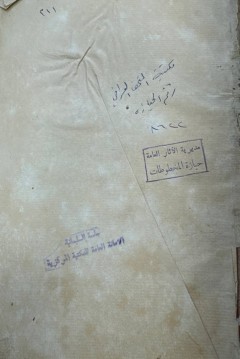 ٢١١
مكتبة المتحف العراقي
رقم الحيازة
٨٦٢٢
مديرية الآثار العامة
حيازة المخطوطات
الامانة العامة للمكتبة المركزية